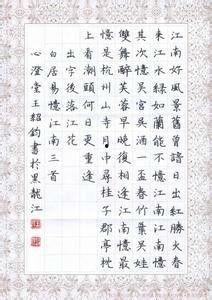 江南好風景舊曾諳日出紅勝火春
來江水綠如藍能不憶江南江南憶
其次憶吳宮吳酒一盃春竹葉吳娃
雙舞醉芙蓉早晚復相逢江南憶最
憶是杭州山寺月中尋桂子郡亭枕
上看潮頭何日更重逢
出字後落江花
白居易憶江南三首
心澄堂王紹鈞書於黑龍江